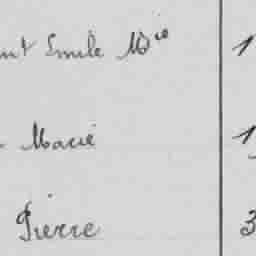 Emile Mie 1
Marie 1
Pierre 3